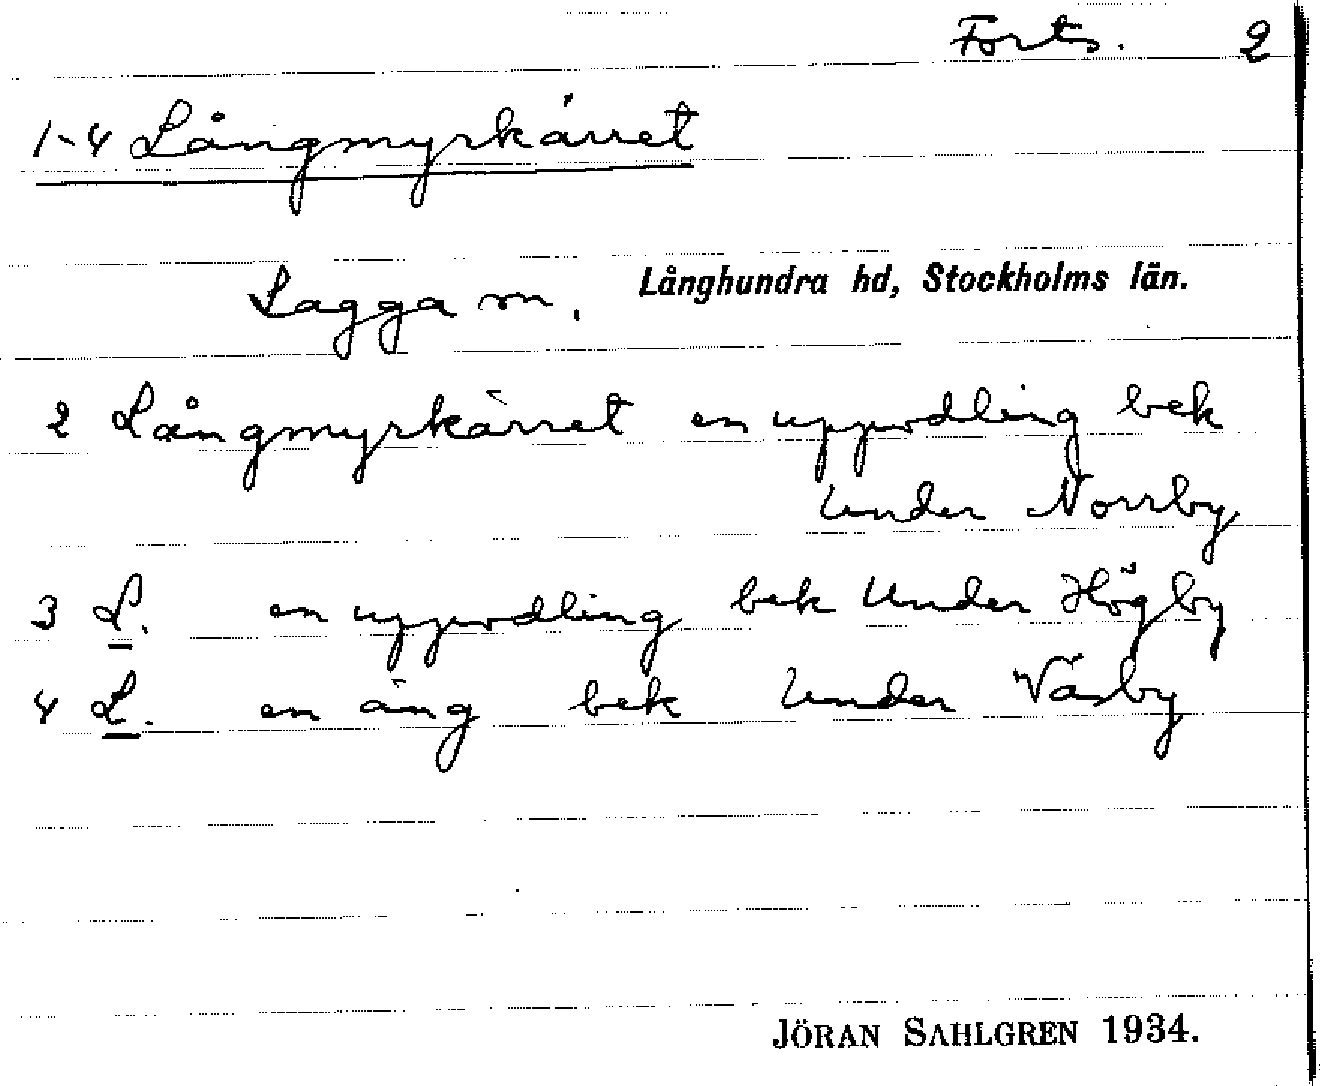 Forts. 2
1-4 Långmyrkärret
Lagga sn. Långhundra hd, Stockholms län.
2 Långmyrkärret en uppodling bek
under Norrby
3 L. en uppodling bek under Högby
4 L. en äng bek under Väsby
JÖRAN SAHLGREN 1934.